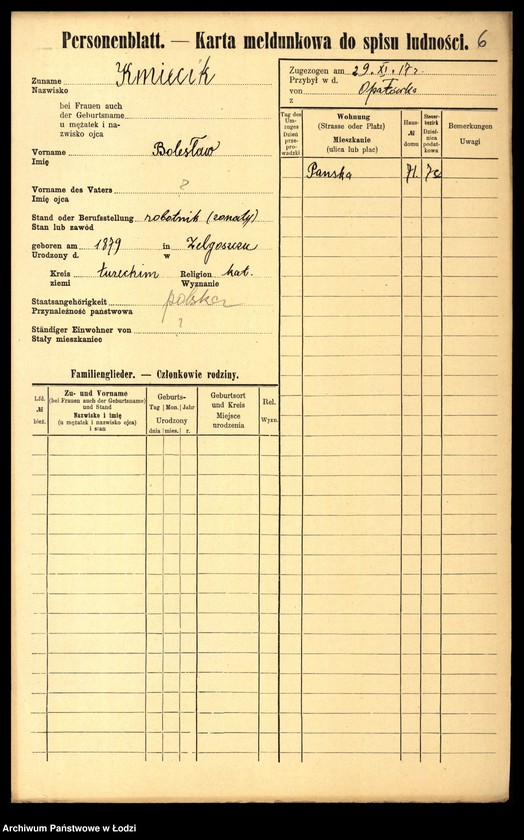 Personenblatt. — Karta meldunkowa do spisu ludności. 6
Zuname Kmiecik
Nazwisko
bei Frauen auch
der Geburtsname
u mężatek i na-
zwisko ojca
Vorname Bolesław
Imię
Vorname des Vaters ?
Imię ojca
Stand oder Berufsstellung robotnik (żonaty)
Stan lub zawód
geboren am 1879 in Zelgoszczu
Urodzony d. w
Kreis tureckim Religion kat.
ziemi Wyznanie
Staatsangehörigkeit polska
Przynależność państwowa
Ständiger Einwohner von ?
Stały mieszkaniec
Zugezogen am 29. XI. 17 r.
Przybył w d.
von Opatówka
z
Tag des Um-zuges Dzień prze-pro-wadzki
Wohnung
(Strasse oder Platz)
Mieszkanie
(ulica lub plac)
Haus-
№
domu
Steuer-bezirk Dziel-nica podat-kowa
Bemerkungen
Uwagi
Pańska 71. 7c
Familienglieder. — Członkowie rodziny.
Lfd.
№
bież.
Zu- und Vorname
(bei Frauen auch der Geburtsname)
und Stand
Nazwisko i imię
(u mężatek i nazwisko ojca)
i stan
Geburts-
Tag Mon. Jahr
Urodzony
dnia mies. r.
Geburtsort
und Kreis
Miejsce
urodzenia
Rel.
Wyzn.
Archiwum Państwowe w Łodzi